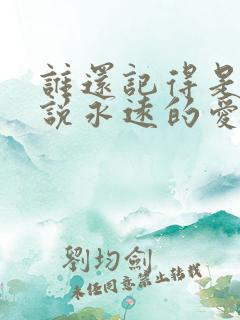 誰還記得是
說永遠的愛
劉均劍
未經同意禁止轉載